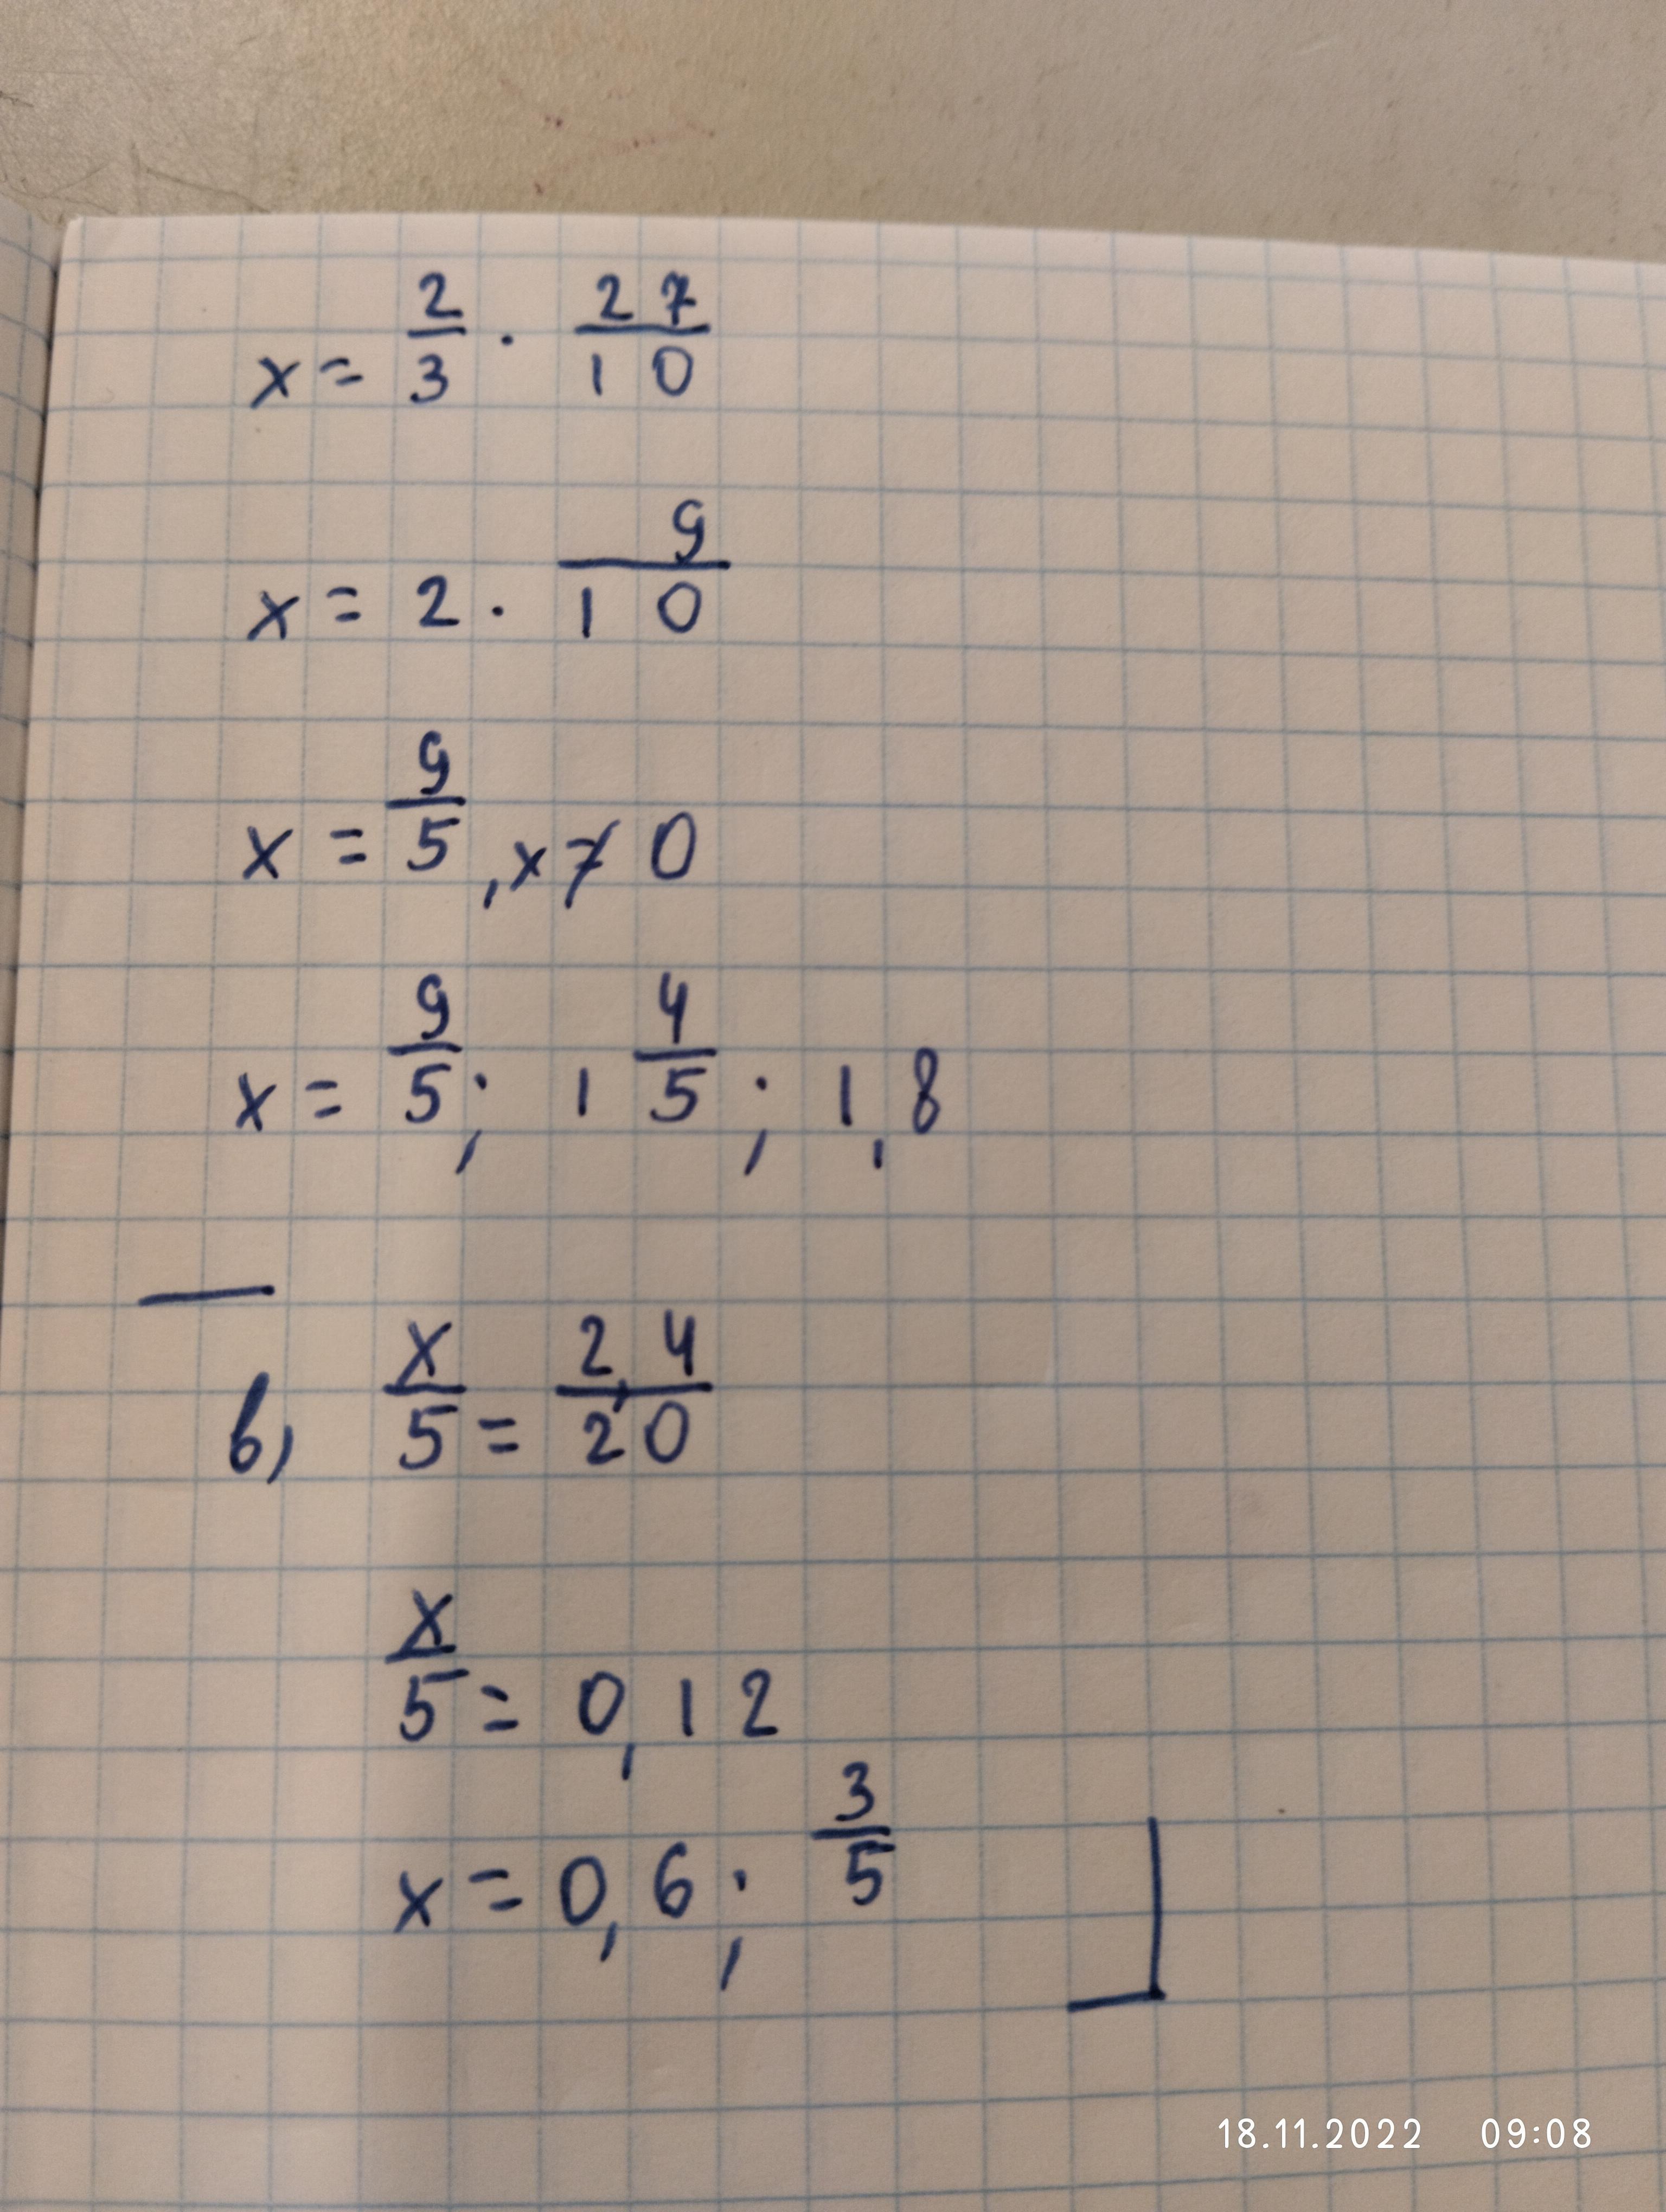 x = 2/3 · 27/10
x = 2 · 9/10
x = 9/5, x ≠ 0
x = 9/5; 1 4/5; 1,8
б) x/5 = 2,4/20
x/5 = 0,12
x = 0,6; 3/5
18.11.2022 09:08